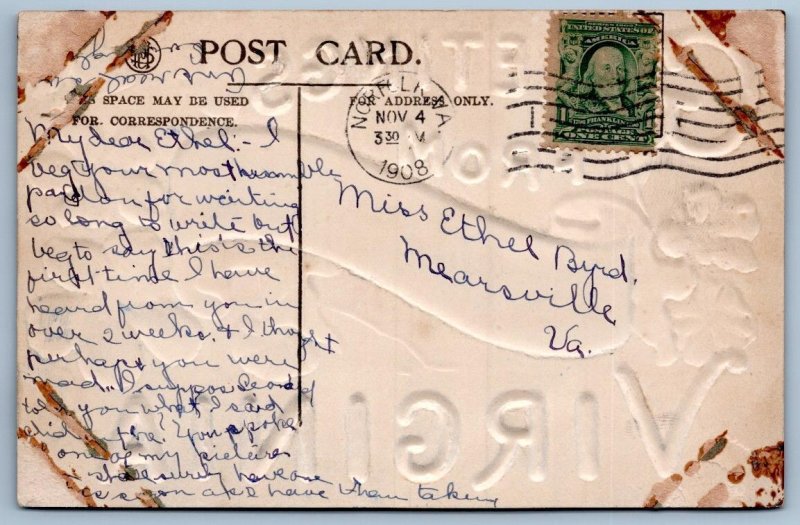 POST CARD.
THIS SPACE MAY BE USED
FOR CORRESPONDENCE.
FOR ADDRESS ONLY.
NOV 4
3 30 M
1908
UNITED STATES OF
AMERICA
FRANKLIN
POSTAGE
ONE CENT
My dear Ethel:- I
beg your most humble
pardon for waiting
so long to write but
beg to say this is the
first time I have
heard from you in
over 2 weeks. & I thought
perhaps you were
mad.. I suppose
told you what I said
did he? You spoke
one of my pictures
shall surely have one
as soon as I have them taken
Miss Ethel Byrd.
Mearsville
Va.
FROM
VIRGINIA